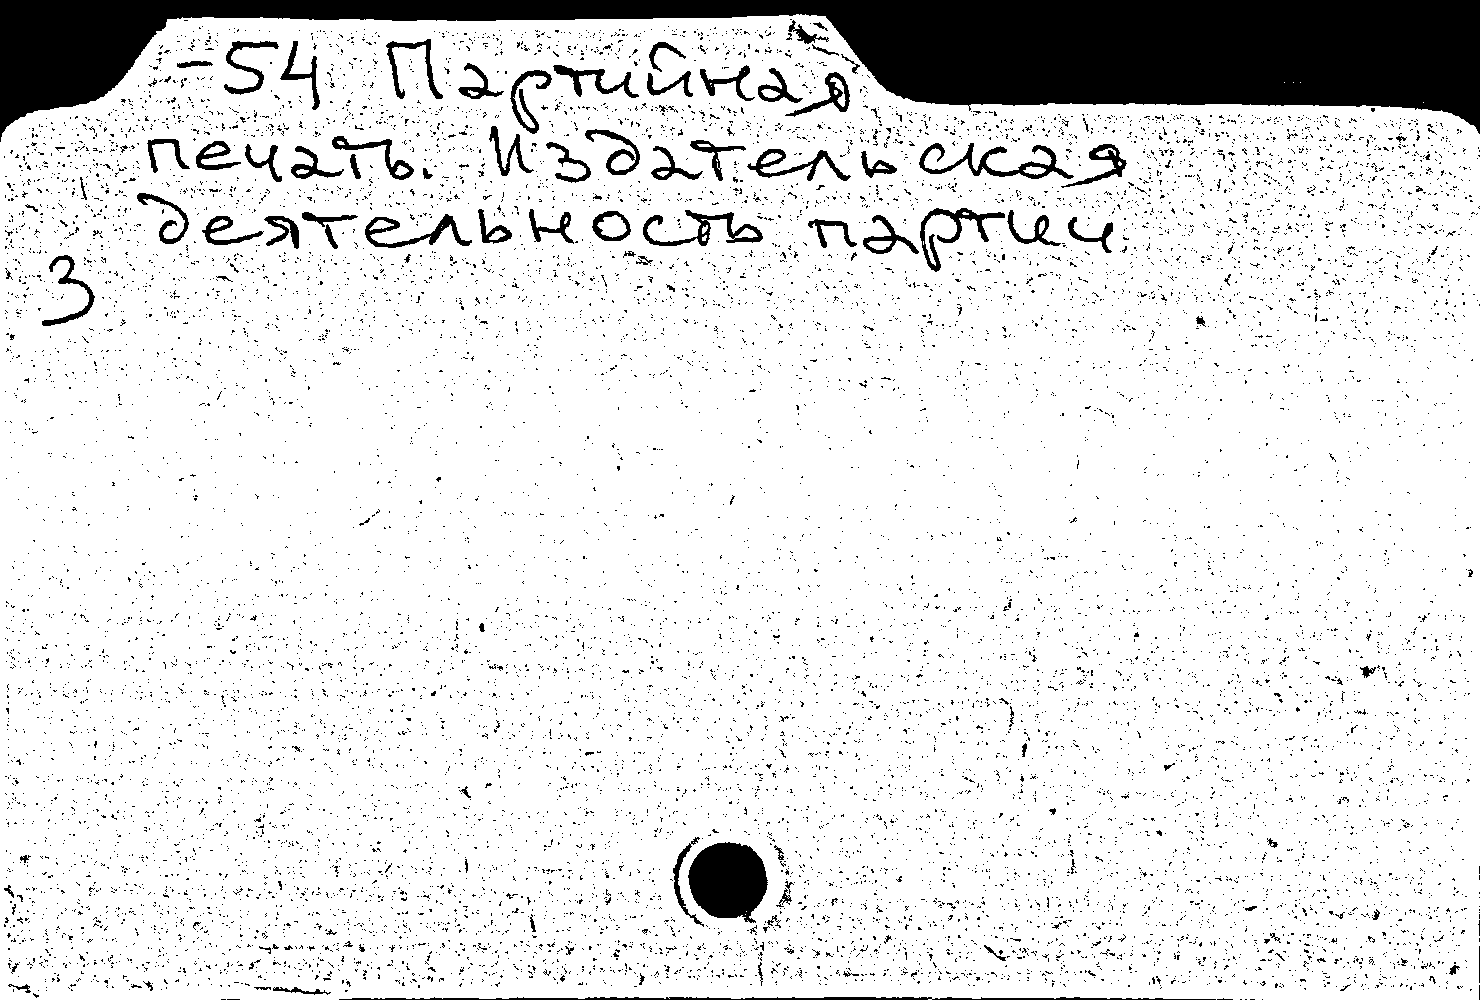 -54 Партийная
печать. Издательская
деятельность партии
3